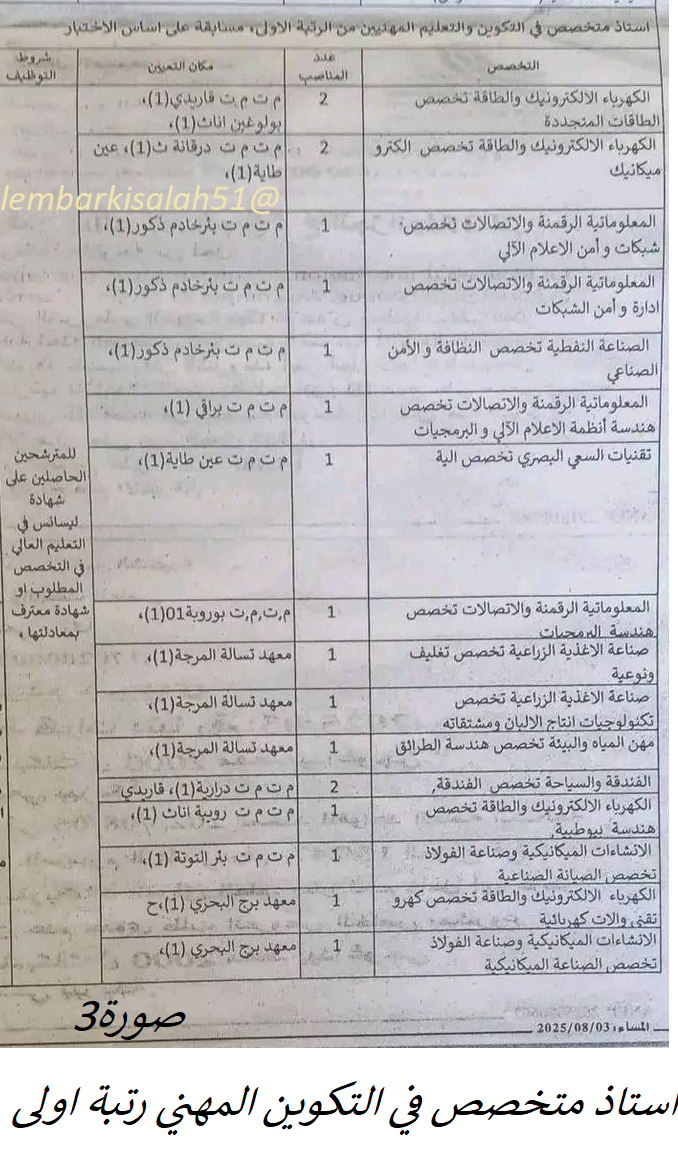 استاذ متخصص في التكوين والتعليم المهنيين من الرتبة الاول، مسابقة على اساس الاختبار
التخصص
عدد
المناصب
مكان التعيين
شروط
التوظيف
الكهرباء الالكترونيك والطاقة تخصص
الطاقات المتجددة
2
م ت م ت قاريدي(1)،
بولوغين اناث(1)،
الكهرباء الالكترونيك والطاقة تخصص الكترو
ميكانيك
2
م ت م ت درقانة ث(1)، عين
طاية(1)،
lembarkisalah51@
المعلوماتية الرقمنة والاتصالات تخصص
شبكات و أمن الاعلام الآلي
1
م ت م ت بئرخادم ذكور(1)،
المعلوماتية الرقمنة والاتصالات تخصص
ادارة و أمن الشبكات
1
م ت م ت بئرخادم ذكور(1)،
الصناعة النفطية تخصص النظافة و الأمن
الصناعي
1
م ت م ت بئرخادم ذكور(1)،
المعلوماتية الرقمنة والاتصالات تخصص
هندسة أنظمة الاعلام الآلي و البرمجيات
1
م ت م ت براقي (1)،
تقنيات السعي البصري تخصص الية
1
م ت م ت عين طاية(1)،
للمترشحين
الحاصلين على
شهادة
ليسانس في
التعليم العالي
في التخصص
المطلوب او
شهادة معترف
بمعادلتها ،
المعلوماتية الرقمنة والاتصالات تخصص
هندسة البرمجيات
1
م,ت,م,ت بوروبة01(1)،
صناعة الاغذية الزراعية تخصص تغليف
ونوعية
1
معهد تسالة المرجة(1)،
صناعة الاغذية الزراعية تخصص
تكنولوجيات انتاج الالبان ومشتقاته
1
معهد تسالة المرجة(1)،
مهن المياه والبيئة تخصص هندسة الطرائق
1
معهد تسالة المرجة(1)،
الفندقة والسياحة تخصص الفندقة,
2
م ت م ت درارية(1)، قاريدي
الكهرباء الالكترونيك والطاقة تخصص
هندسة بيوطبية,
1
م ت م ت رويبة اناث (1)،
الانشاءات الميكانيكية وصناعة الفولاذ
تخصص الصيانة الصناعية
1
م ت م ت بئر التوتة (1)،
الكهرباء الالكترونيك والطاقة تخصص كهرو
تقني والات كهربائية
1
معهد برج البحري (1)،ح
الانشاءات الميكانيكية وصناعة الفولاذ
تخصص الصناعة الميكانيكية
1
معهد برج البحري (1)،
صورة3
المساء: 2025/08/03
استاذ متخصص في التكوين المهني رتبة اولى